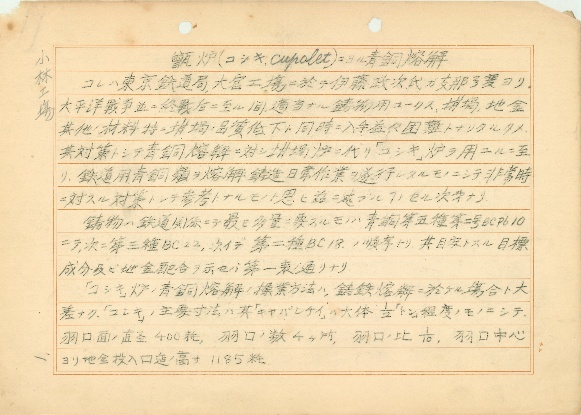 小林工場
甑炉(コシキ、cupolet)ニヨル青銅熔解
コレハ東京鉄道局大宮工場ニ於テ伊藤政次氏ガ支那事変ヨリ、
太平洋戦争並ニ終戦后ニ至ル間、適当ナル鋳物用コークス、坩堝、地金
其他ノ材料特ニ坩堝ノ品質低下ト同時ニ入手益々困難トナリタル タメ、
其対策トシテ青銅ノ熔解ニ対シ坩堝炉ニ代リ「コシキ」炉ヲ用ユルニ至
リ、鉄道用青銅鋳ヲ熔解鋳造日常作業ヲ遂行シタルモノニシテ非常時
ニ対スル対策トシテ参考トナルモノト思ヒ 次第ナリ
鋳物ハ鉄道関係ニテ最モ多量ニ要スルモノハ青銅第五種第二号BCPb10
ニテ、次ニ第三種BC22、次イデ第二種BC18ノ順序トリ其目安トスル目標
成分及ビ地金配合ヲ示セバ第一表ノ通リナリ
「コシキ」炉ノ青銅熔解ノ操業方法ハ、鋳鉄熔解ニ於ケル場合ト大
差ナク、「コシキ」ノ主要寸法ハ其「キャパシテイ」ハ大体½「トン」程度ノモノニシテ、
羽口面ノ直径400粍、羽口ノ数4ヶ所、羽口ノ比1/10、羽口中心
ヨリ地金投入口迄ノ高サ1185粍
1.